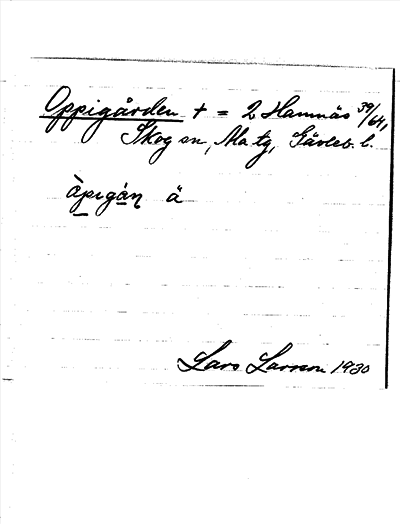 Oppigården + = 2 Hamnäs 39/64,
Skog sn, Ala tg, Gävleb. l.
àpigáṇ ä
Lars Larsson 1930